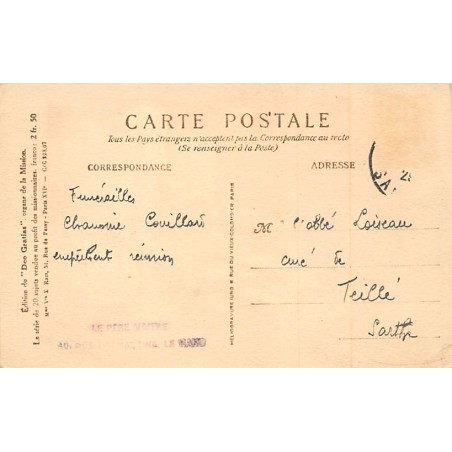 CARTE POSTALE
Tous les Pays étrangers n'acceptent pas la Correspondance au recto
(Se renseigner à la Poste)
CORRESPONDANCE
ADRESSE
Funérailles
Chanoine Couillard
empêchent réunion
M l'abbé Loiseau
curé de
Teillé
Sarthe
LE PÈRE
LE MANS
Édition du "Deo Gratias", organe de la Mission.
La série de 20 sujets vendue au profit des missionnaires, franco: 2 fr. 50
HÉLIOGRAVURE 8 RUE DU VIEUX-COLOMBIER PARIS